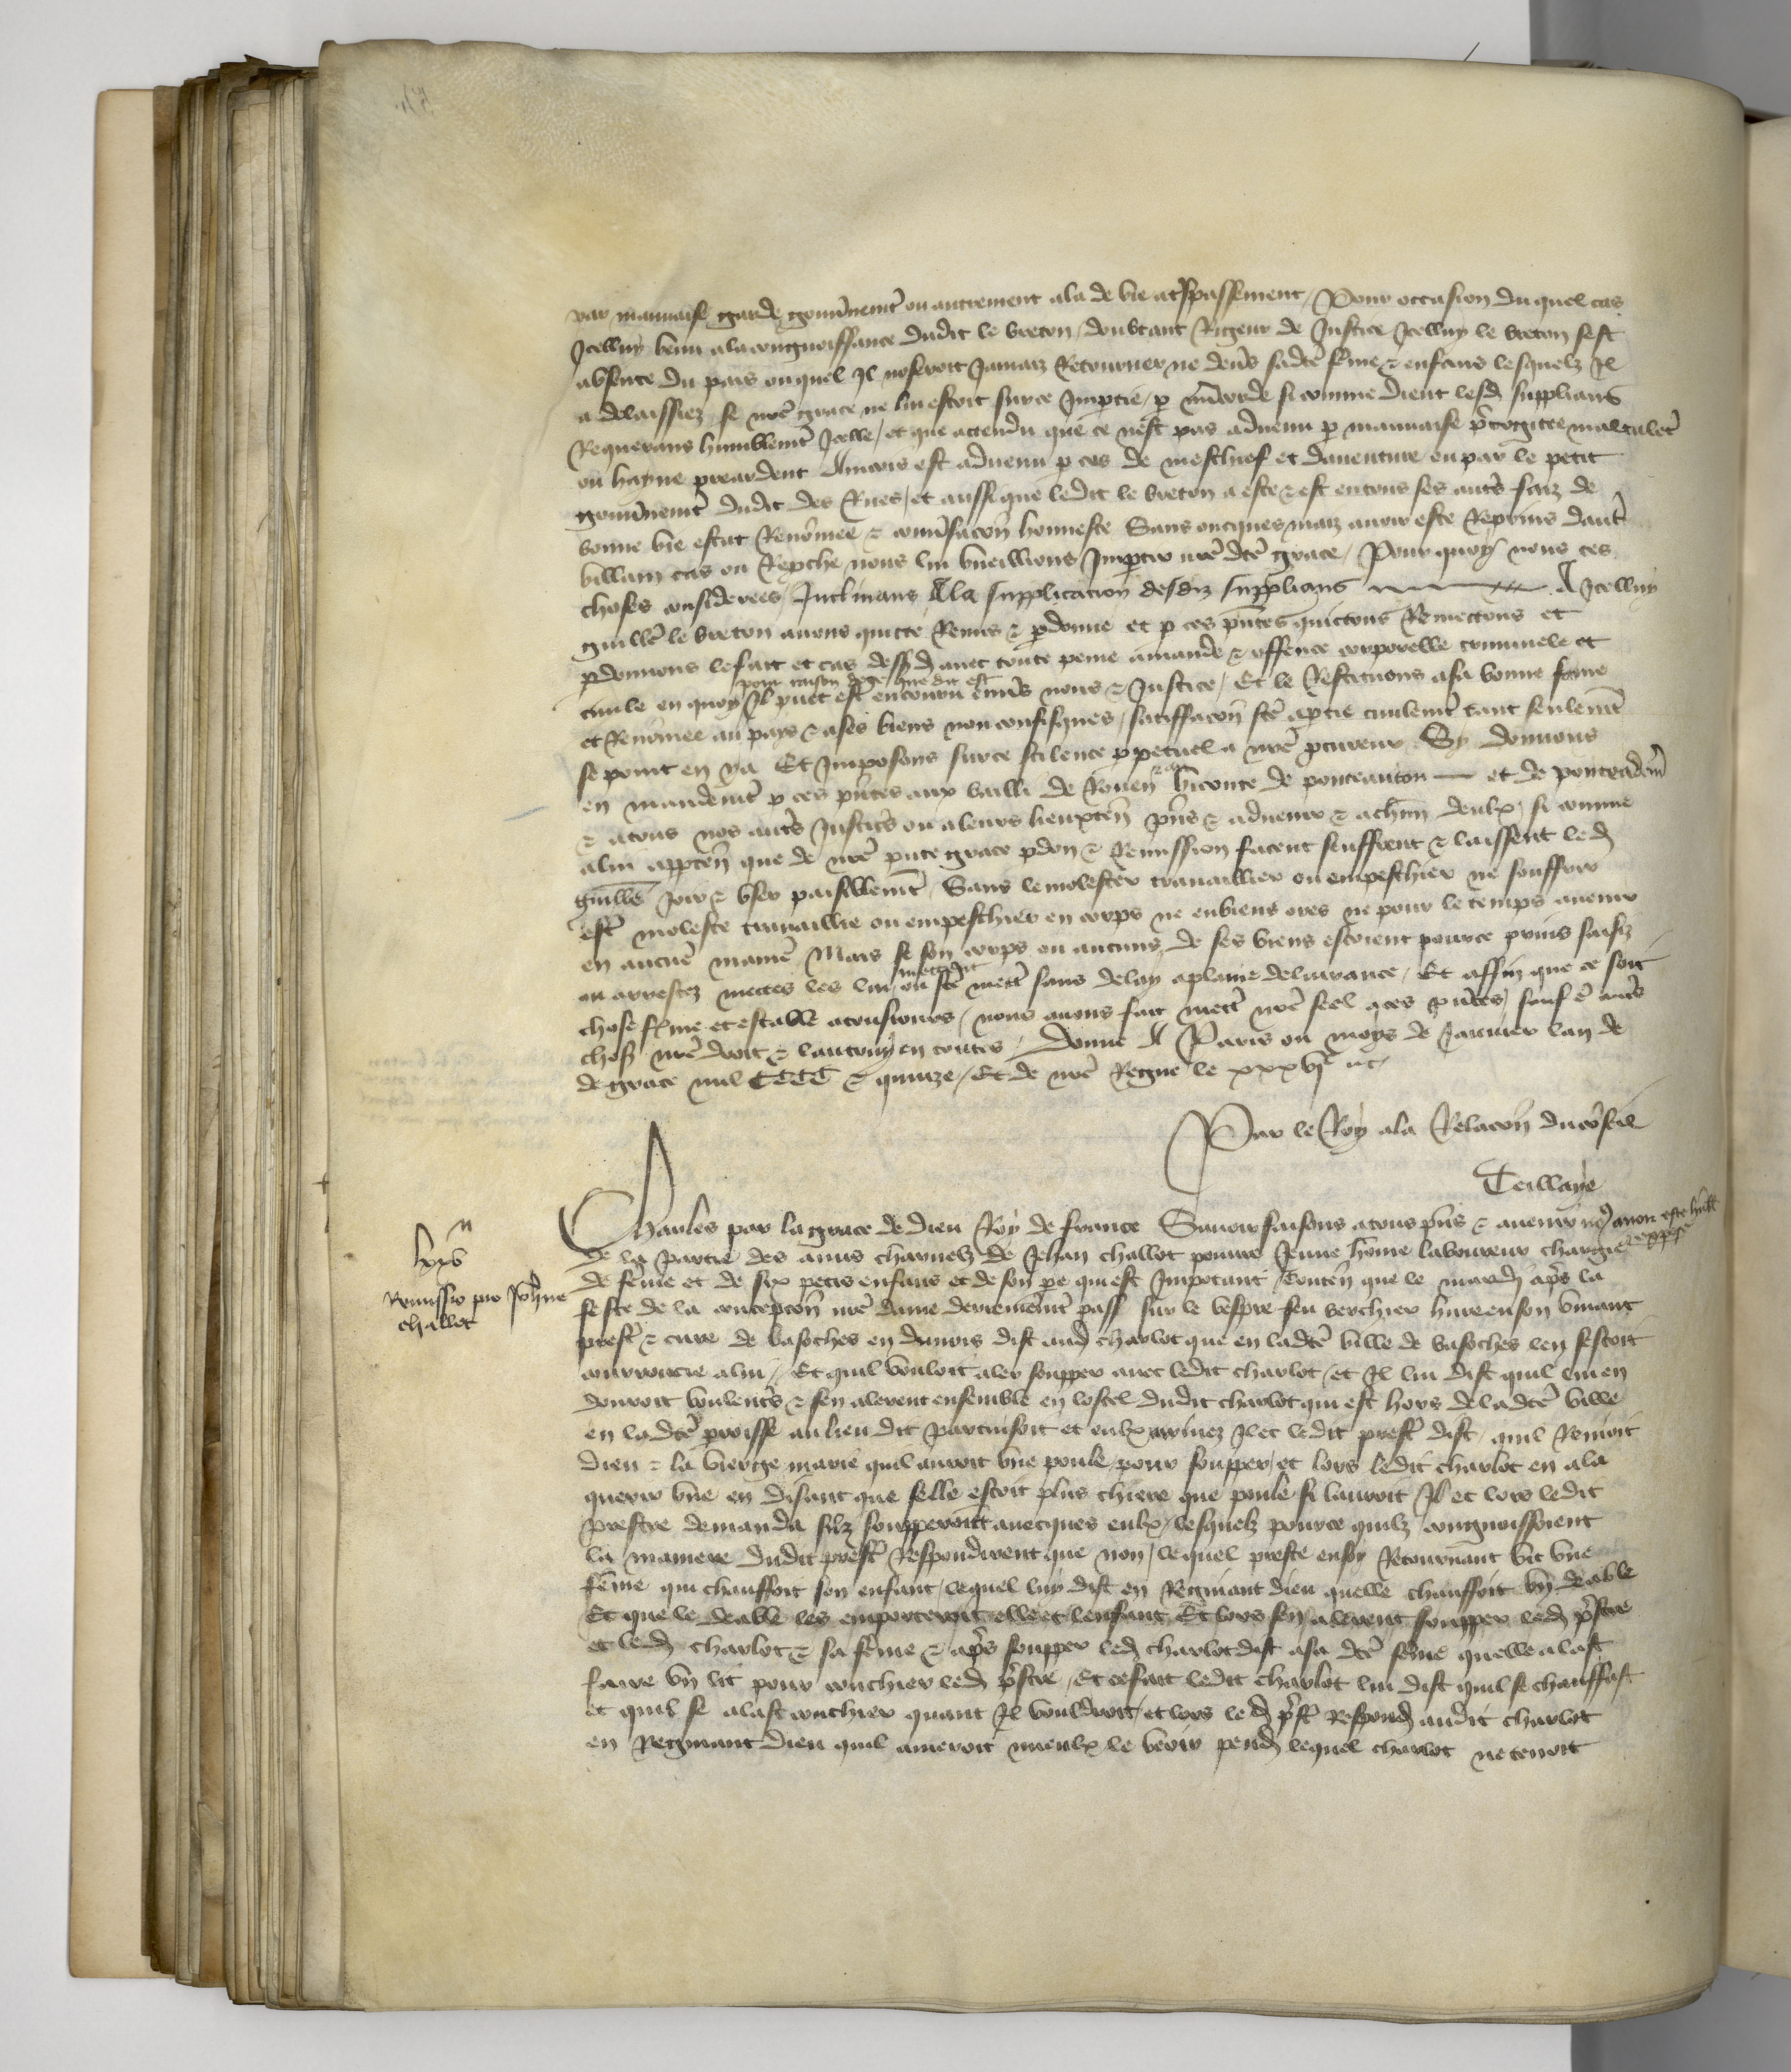 par mauuaise garde gouu̾nemt̾ ou autrement ala de vie a trespassement / Pour occasion du quel cas
Icelluy venu ala congnoissance dudit le breton / doubtant Rigeur de Justice Icelluy le breton sest
absente du pais ouquel Il noseroit Jamaiz Retourner ne deu̾s sadc̾e fe̾me & enfans lesquelz Il
a delaissiez se nr̾e grace ne lui estoit sur ce Imp̱tie / p̱ mi̾corde si comme dient lesd̾ supplians
Requerans humblemt̾ Icelle / et que attendu que ce nest pas aduenu p̱ mauuaise p̾cogitee
ou hayne precedent Aincois est aduenu p̱ cas de meschief et dauenture ou par le petit
gouu̾nemt̾ dudit des Rues / et aussi que ledit le breton a este & est en tous ses aut̾s faiz de
bonne vie estat Reno̾mee & conu̾sacōn honneste Sans oncques maiz auoir este Reprins daut̾
villain cas ou Rep̱che nous lui vueillions Imp̱tir nr̾e dc̾e grace / Pour quoy nous ces
choses considerees / Inclinans Ala supplicacion desdiz supplians A Icelluy
guille̾ le breton auons quicte Remis & p̱donne et p̱ ces pn̾tes quictons Remectons et
p̱donnons le fait et cas dessusd̾ auec toute peine amande & offence corporelle criminele et
pour raison de ce que dit est
ciuile en quoy Il puet est̾ encouru enu̾s nous & Justice / Et le Restituons a sa bonne fame
et Reno̾mee au pays & a ses biens non confisques / satiffacōn fc̾e a p̱tie ciuilemt̾ tant seulemt̾
se point en y a Et Imposons sur ce scilence p̱petuel a nr̾e p̱cureur Sy donnons
en mandemt̾ p̱ ces pn̾tes aux bailli de Rouen & au viconte de ponteautou et de ponteaudem̾
& a tous nos aut̾s Justic̾s ou a leurs lieuxten̾ pn̾s & aduenir & a chūn deulx / si comme
alui app̱ten̾ que de nr̾e pn̾te grace p̱don & Remission facent seuffrent & laissent led̾
guille̾ Joir & vser paisiblemt̾ Sans le molester trauaillier ou empeschier ne souffrir
est̾ moleste trauaillie ou empeschier en corps ne en biens ores ne pour le temps auenir
en aucun̾e manie̾ Mais se son corps ou aucuns de ses biens estoient pour ce prins saisiz
ou arrestez mettes les lui ou fc̾e mett̾ sans delay a plaine deliurance / Et affin que ce soit
chose ferme et estable a tousiours / nous auons fait mett̾ nr̾e seel a ces pn̾tes / sauf en̾ aut̾s
chos̾ nr̾e droit & lautruy en toutes / Donne A Paris ou moys de Januier lan de
de grace mil CCCC & quinze / Et de nr̾e Regne le xxxvjͤ
Par le Roy ala Relacōn du co̾seil
Teillaye
Charles par la grace de dieu Roy de france Sauoir faisons a tous pn̾s & auenir nous auoir este hu̾blt̾ expose
de la partie des amis charnelz de Jehan challot poure Jeune ho̾me laboureur chargie
de fe̾me et de six petis enfans et de son pe̾ qui est Impotant / Conten̾ que le mardi ap̾s la
feste de la concepcōn nr̾e dame derrieremt̾ pass̾ sur le vespre feu berthier en son viuant
prest̾ & cure de basoches en dunois dist aud̾ charlot que en ladc̾e ville de basoches len sestoit
courroucie alui / Et quil vouloit aler soupper auec ledit charlot / et Il lui dist quil lui en
donroit voulent̾s & sen alerent ensemble en lostel dudit charlot qui est hors de ladc̾e ville
en ladc̾e p̱roisse au lieu dit et eulx arriuez Ilec ledit prest̾ dist / quil Renioit
dieu & la vierge marie quil auroit vne poule pour soupper / et lors ledit charlot en ala
querir vne en disant que selle estoit plus chiere que poule si lauroit Il et lors ledit
prestre demanda silz soupperoient auecques eulx / lesquelz pource quilz congnoissoient
la maniere dudit prest̾ Respondirent que non / lequel prest̾e en soy Retournant vit vne
fe̾me qui chauffoit son enfant / lequel luy dist en Regniant dieu quelle chauffoit vn deable
Et que le deable les emporteroit elle et lenfant Et lors sen alerent soupper led̾ p̾stre
et led̾ charlot & sa fe̾me & ap̾s soupper led̾ charlot dist a sa dc̾e fe̾me quelle alast
faire vn lit pour couchier led̾ p̾stre / Et ce fait ledit charlot lui dist quil se chauffast
et quil se alast couchier quant Il vouldroit / et lors led̾ p̾st̾ Respond̾ audit charlot
en Regniant dieu quil ameroit mieulx le veoir pend̾ lequel charlot ne tenoit
lxv
Remissio pro Joh̾ne
challot